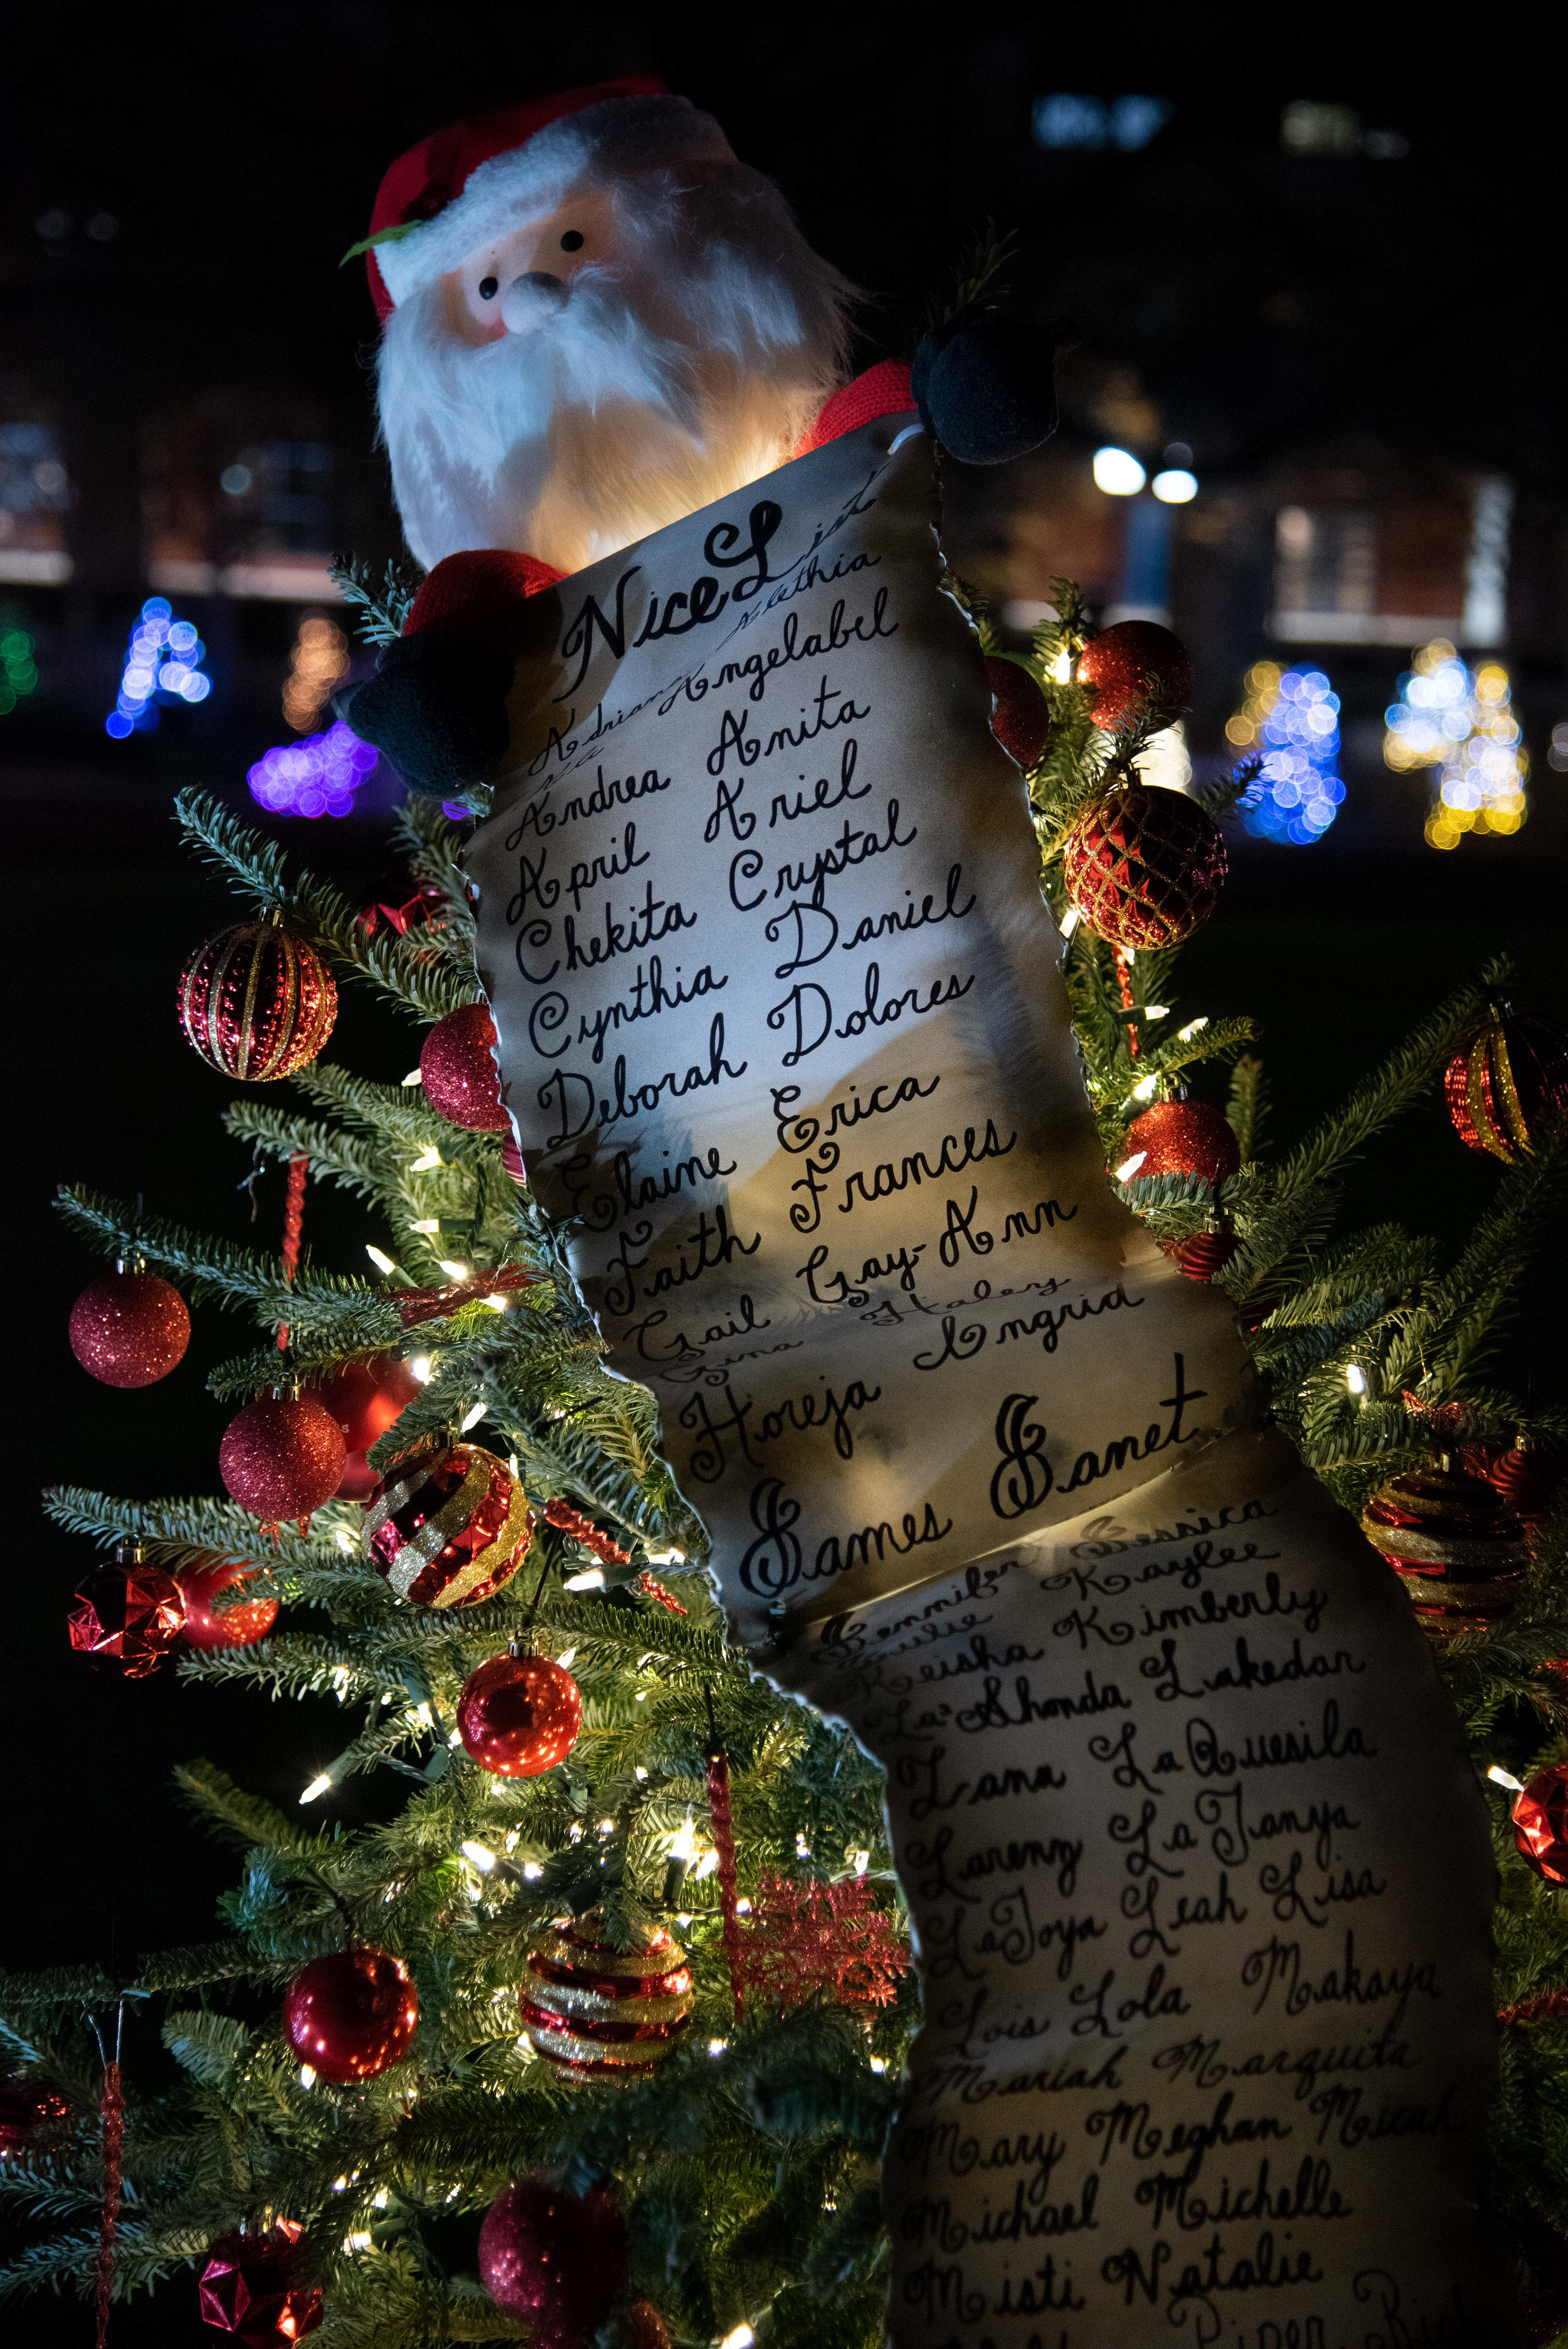 Nice List
Alethia
Adrian Angelabel
Andrea Anita
April Ariel
Chekita Crystal
Cynthia Daniel
Deborah Dolores
Elaine Erica
Faith Frances
Gail Gay-Ann
Gina Haley
Horeja Ingrid
James Janet
Jennifer Jessica
Julie Kaylee
Keisha Kimberly
La'Shonda Lakedar
Lana LaQuesila
Larenz LaTanya
LaToya Leah Lisa
Lois Lola Makaya
Mariah Marquita
Mary Meghan Micah
Michael Michelle
Misti Natalie
Piper